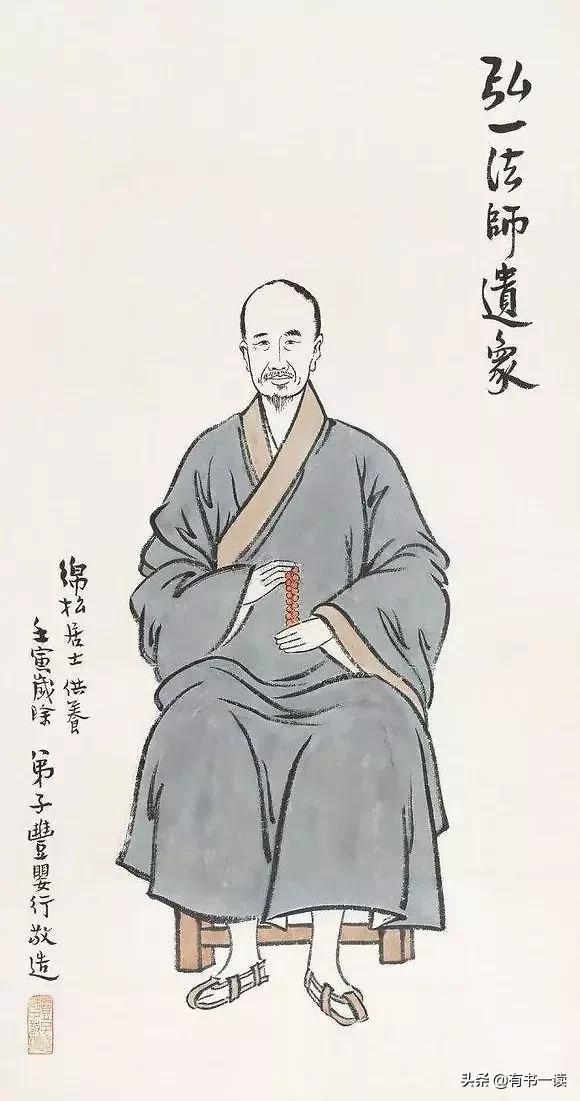 弘一法師遺象
綿松居士供養
壬寅歲除 弟子豐嬰行敬造
头条 @有书一读